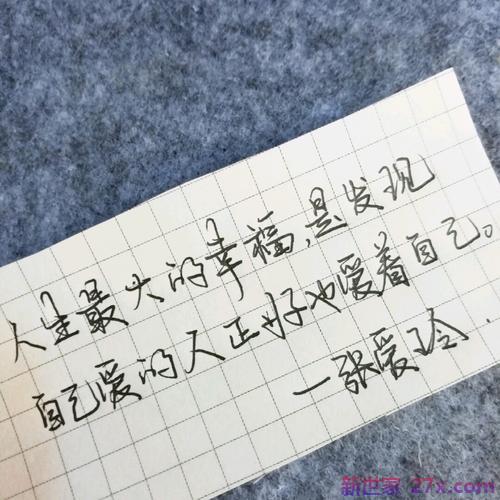 人生最大的幸福,是发现
自己爱的人正好也爱着自己。
一张爱玲
新世家 27x.com